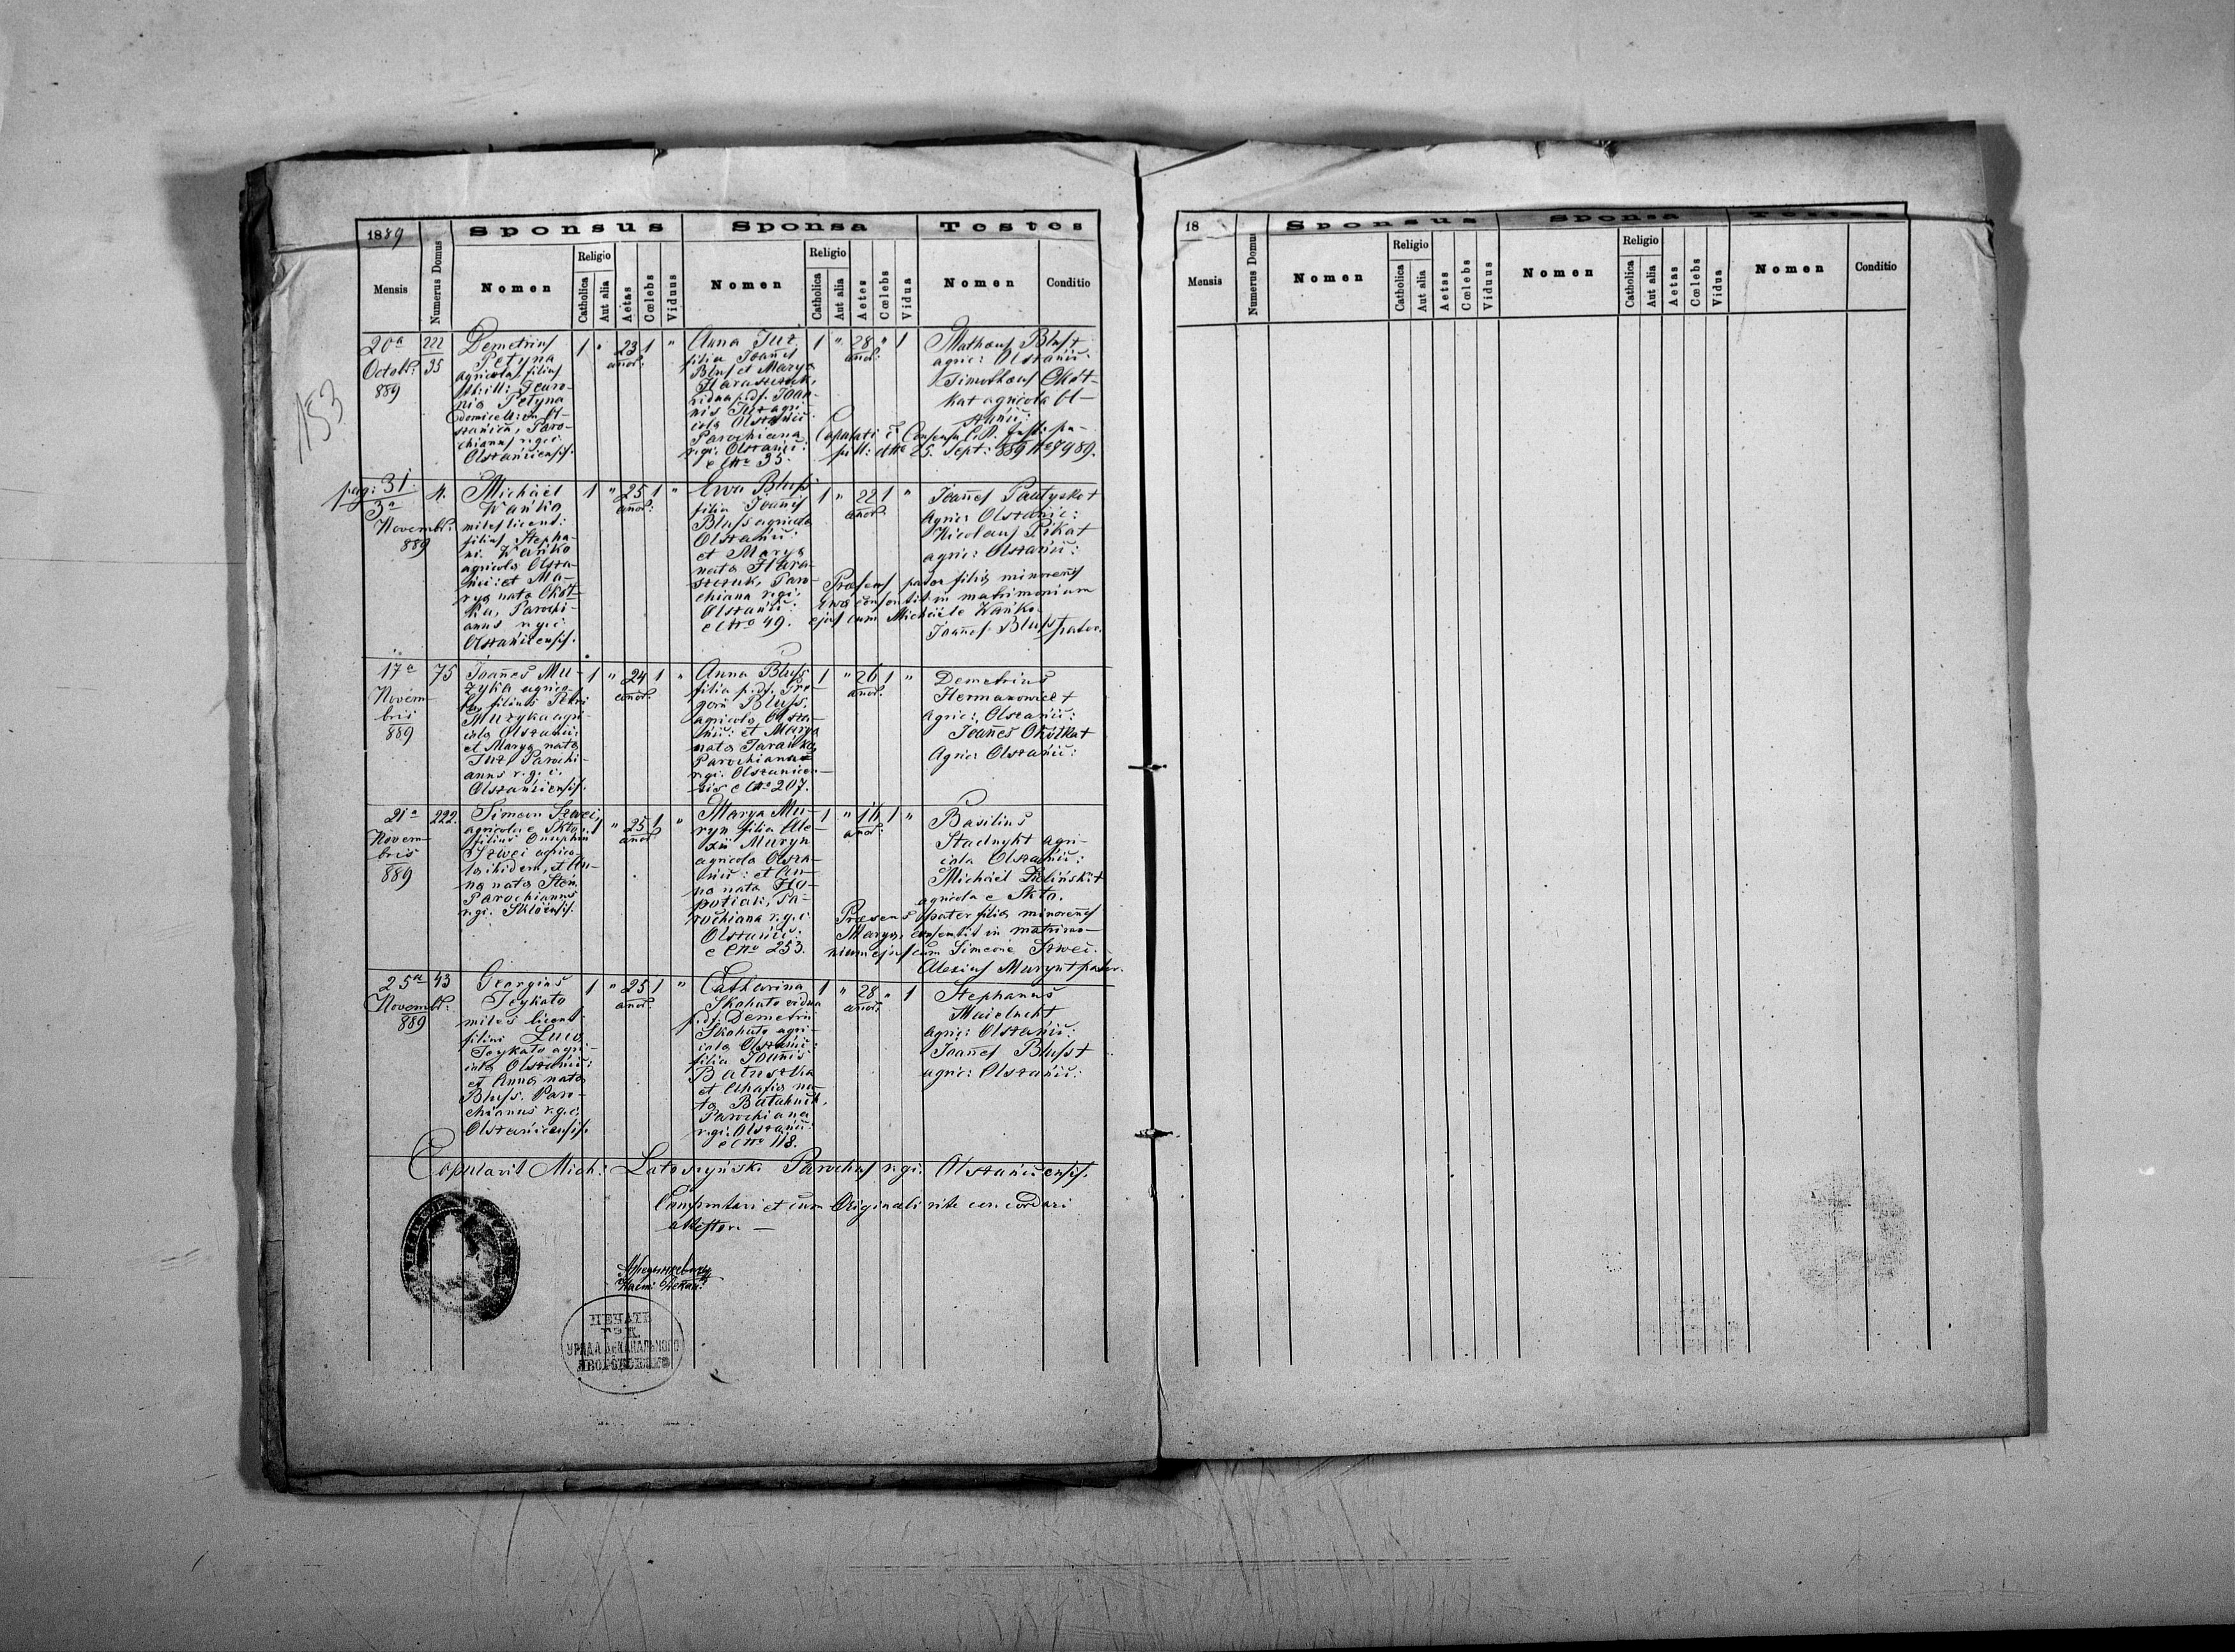 153
1889
Sponsus
Sponsa
Testes
Mensis
Numerus Domus
Nomen
Religio
Catholica
Aut alia
Aetas
Cœlebs
Viduus
Nomen
Religio
Catholica
Aut alia
Aetes
Cœlebs
Vidua
Nomen
Conditio
20a
Octobr:
889
222
35
Demetrius
Petyna
agricola, filius
Petyna
Paro-
chianus r.g.c.
Olszanicensis.
1 " 23 1 "
anor:
Anna Juz
filia Joannis
Bluss et Marya
Haraszczuk,
vidua p.d. Joan-
nis Juz agri-
cola Olszanic:
Parochiana
r.g.c. Olszanic:
e CNro 35.
1 " 28 " 1
anor:
Mathæus Bluss +
agric: Olszanic:
Timotheus Okót-
ka + agricola Ol-
szanic:
Copulati
25. Sept: 889 No 7989.
pag: 31.
3a
Novembr:
889
4.
Michael
Wańko
miles licent:
filius Stepha-
ni Wańko
agricola Olsza-
nic: et Ma-
rya nata Okót-
ka, Parochi-
anus r.g.c.
Olszanicensis.
1 " 25 1 "
anor:
Ewa Bluss
filia Joannis
Bluss agricola
Olszanic:
et Marya
nata Hara-
szczuk, Paro-
chiana r.g.c.
Olszanic:
e CNro 49.
1 " 22 1 "
anor:
Agric: Olszanic:
Nicolaus Pikat
agric: Olszanic:
Præsens pater filiæ minorennis
Ewa consentit in matrimonium
ejus cum Michaële Wańko.
Joannes Bluss + pater.
17a
Novem-
bris
889
75
Joannes Mu-
zyka agrico-
la, filius Petri
Muzyka agri-
cola Olszanic:
et Marya nata
Juz, Parochi-
anus r.g.c.
Olszanicensis.
1 " 24 1 "
anor:
Anna Bluss
filia p.d. Gre-
gorii Bluss,
agricola Olsza-
nic: et Marya
nata
Parochiana
r.g.c. Olszanicen-
sis e CNo 207.
1 " 26 1 "
anor:
Demetrius
Hermanowicz +
Agric: Olszanic:
Joannes Okótka +
Agric: Olszanic:
21a
Novem-
bris
889
222.
Simeon Szwei,
agricola e Skło,
filius Onuphrii
Szwei agrico-
la ibidem, et An-
na nata Sten,
Parochianus
r.g.c. Skłoensis.
1 " 25 1 "
anor:
Marya Mu-
ryn filia Ale-
xii Muryn
agricola Olsza-
nic: et An-
na nata
Pa-
rochiana r.g.c.
Olszanic:
e CNo 253.
1 " 1 "
anor:
Basilius
Stadnyk + agri-
cola Olszanic:
Michaël
agricola e Skło.
Præsens pater filiæ minorennis
Marya, consentit in matrimo-
nium ejus cum Simeone Szwei.
Alexius Muryn + pater.
25a
Novembr:
889
43
Georgius
miles licent:
filius Luca
agri-
cola Olszanic:
et Anna nata
Bluss. Paro-
chianus r.g.c.
Olszanicensis.
1 " 25 1 "
anor:
Catharina
Skohuta vidua
p.d. Demetrii
Skohuta agri-
cola Olszanic:
filia Joannis
et Ahafia na-
ta
Parochiana
r.g.c. Olszanic:
e CNro 118.
1 " 28 " 1
anor:
Stephanus
Agric: Olszanic:
Joannes Bluss +
agric: Olszanic:
Copulavit Mich: Latoszyński Parochus r.g.c. Olszanicensis.
et cum Originali rite concordari
attestor. —
ПЕЧАТЬ
УРЯДА ДЕКАНАЛЬНОГО
18
Sponsus
Sponsa
Testes
Mensis
Numerus Domus
Nomen
Religio
Catholica
Aut alia
Aetas
Cœlebs
Viduus
Nomen
Religio
Catholica
Aut alia
Aetas
Cœlebs
Vidua
Nomen
Conditio